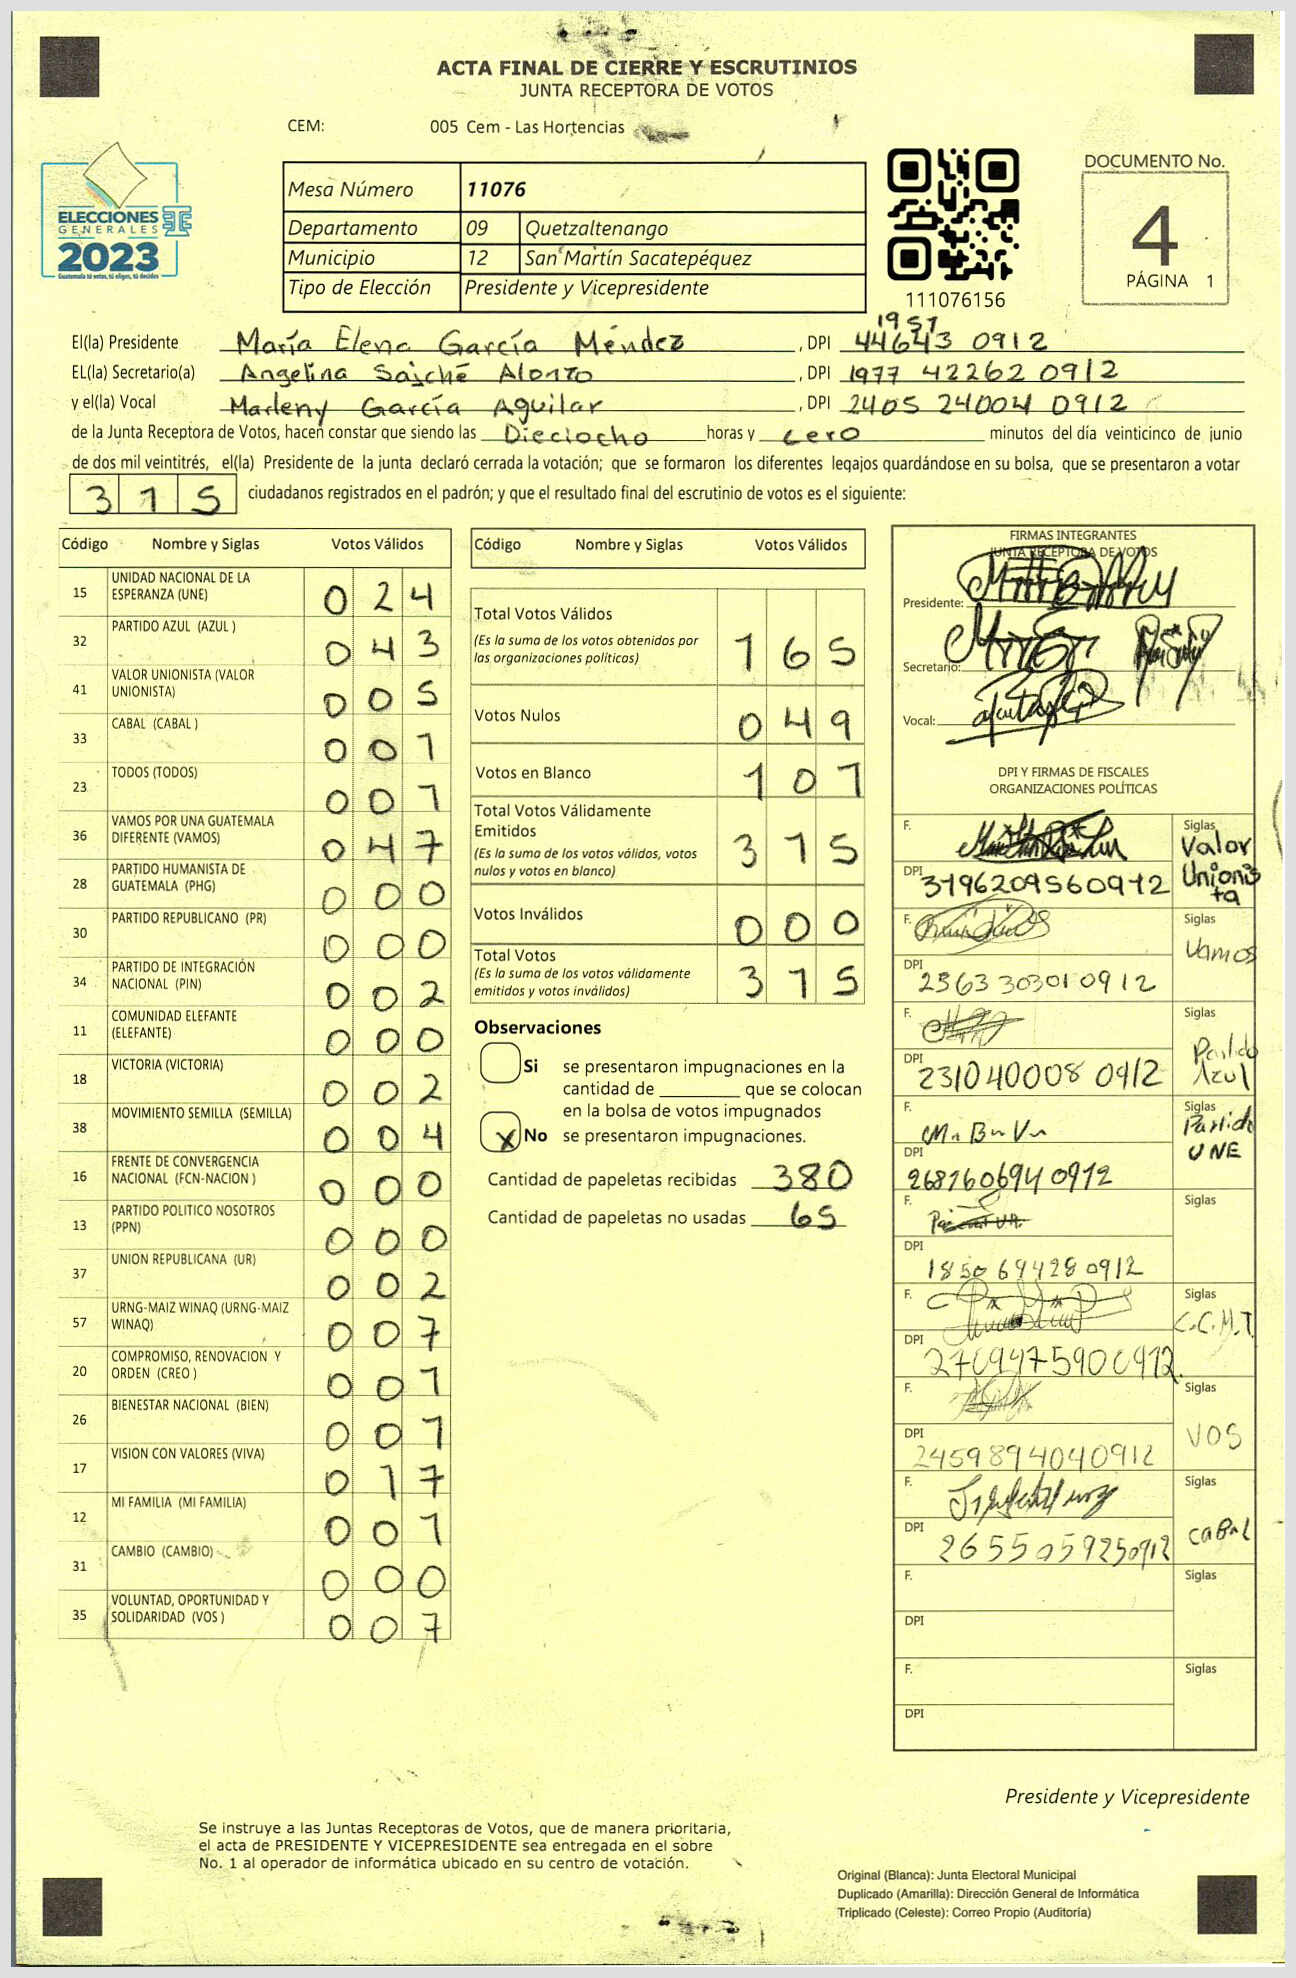 ACTA FINAL DE CIERRE Y ESCRUTINIOS
JUNTA RECEPTORA DE VOTOS
CEM: 005 Cem - Las Hortencias
ELECCIONES
GENERALES
2023
Guatemala tú votas, tú eliges, tú decides
Mesa Número 11076
Departamento 09 Quetzaltenango
Municipio 12 San Martín Sacatepéquez
Tipo de Elección Presidente y Vicepresidente
111076156
DOCUMENTO No.
4
PÁGINA 1
1957
El(la) Presidente María Elena García Méndez , DPI 44643 0912
EL(la) Secretario(a) Angelina Saiché Alonzo , DPI 1977 42262 0912
y el(la) Vocal Marleny García Aguilar , DPI 2405 24004 0912
de la Junta Receptora de Votos, hacen constar que siendo las Dieciocho horas y cero minutos del día veinticinco de junio
de dos mil veintitrés, el(la) Presidente de la junta declaró cerrada la votación; que se formaron los diferentes legajos guardándose en su bolsa, que se presentaron a votar
315 ciudadanos registrados en el padrón; y que el resultado final del escrutinio de votos es el siguiente:
Código Nombre y Siglas Votos Válidos
15 UNIDAD NACIONAL DE LA ESPERANZA (UNE) 024
32 PARTIDO AZUL (AZUL ) 043
41 VALOR UNIONISTA (VALOR UNIONISTA) 005
33 CABAL (CABAL ) 001
23 TODOS (TODOS) 001
36 VAMOS POR UNA GUATEMALA DIFERENTE (VAMOS) 047
28 PARTIDO HUMANISTA DE GUATEMALA (PHG) 000
30 PARTIDO REPUBLICANO (PR) 000
34 PARTIDO DE INTEGRACIÓN NACIONAL (PIN) 002
11 COMUNIDAD ELEFANTE (ELEFANTE) 000
18 VICTORIA (VICTORIA) 002
38 MOVIMIENTO SEMILLA (SEMILLA) 004
16 FRENTE DE CONVERGENCIA NACIONAL (FCN-NACION ) 000
13 PARTIDO POLITICO NOSOTROS (PPN) 000
37 UNION REPUBLICANA (UR) 002
57 URNG-MAIZ WINAQ (URNG-MAIZ WINAQ) 007
20 COMPROMISO, RENOVACION Y ORDEN (CREO ) 001
26 BIENESTAR NACIONAL (BIEN) 001
17 VISION CON VALORES (VIVA) 017
12 MI FAMILIA (MI FAMILIA) 001
31 CAMBIO (CAMBIO) 000
35 VOLUNTAD, OPORTUNIDAD Y SOLIDARIDAD (VOS ) 007
Código Nombre y Siglas Votos Válidos
Total Votos Válidos 165
(Es la suma de los votos obtenidos por
las organizaciones políticas)
Votos Nulos 049
Votos en Blanco 101
Total Votos Válidamente
Emitidos 315
(Es la suma de los votos válidos, votos
nulos y votos en blanco)
Votos Inválidos 000
Total Votos 315
(Es la suma de los votos válidamente
emitidos y votos inválidos)
Observaciones
Si se presentaron impugnaciones en la
cantidad de ________ que se colocan
en la bolsa de votos impugnados
X No se presentaron impugnaciones.
Cantidad de papeletas recibidas 380
Cantidad de papeletas no usadas 65
FIRMAS INTEGRANTES
JUNTA RECEPTORA DE VOTOS
Presidente:
Secretario:
Vocal:
DPI Y FIRMAS DE FISCALES
ORGANIZACIONES POLÍTICAS
F. Siglas Valor Unionista
DPI 3196209560912
F. Siglas Vamos
DPI 2363303010912
F. Siglas Partido Azul
DPI 2310400080912
F. Siglas Partido UNE
DPI 2687606940912
F. Siglas
DPI 1850694280912
F. Siglas C.C.M.T.
DPI 2709475900912
F. Siglas VOS
DPI 2459894040912
F. Siglas CABAL
DPI 2655059250912
F. Siglas
DPI
F. Siglas
DPI
Presidente y Vicepresidente
Se instruye a las Juntas Receptoras de Votos, que de manera prioritaria,
el acta de PRESIDENTE Y VICEPRESIDENTE sea entregada en el sobre
No. 1 al operador de informática ubicado en su centro de votación.
Original (Blanca): Junta Electoral Municipal
Duplicado (Amarilla): Dirección General de Informática
Triplicado (Celeste): Correo Propio (Auditoría)